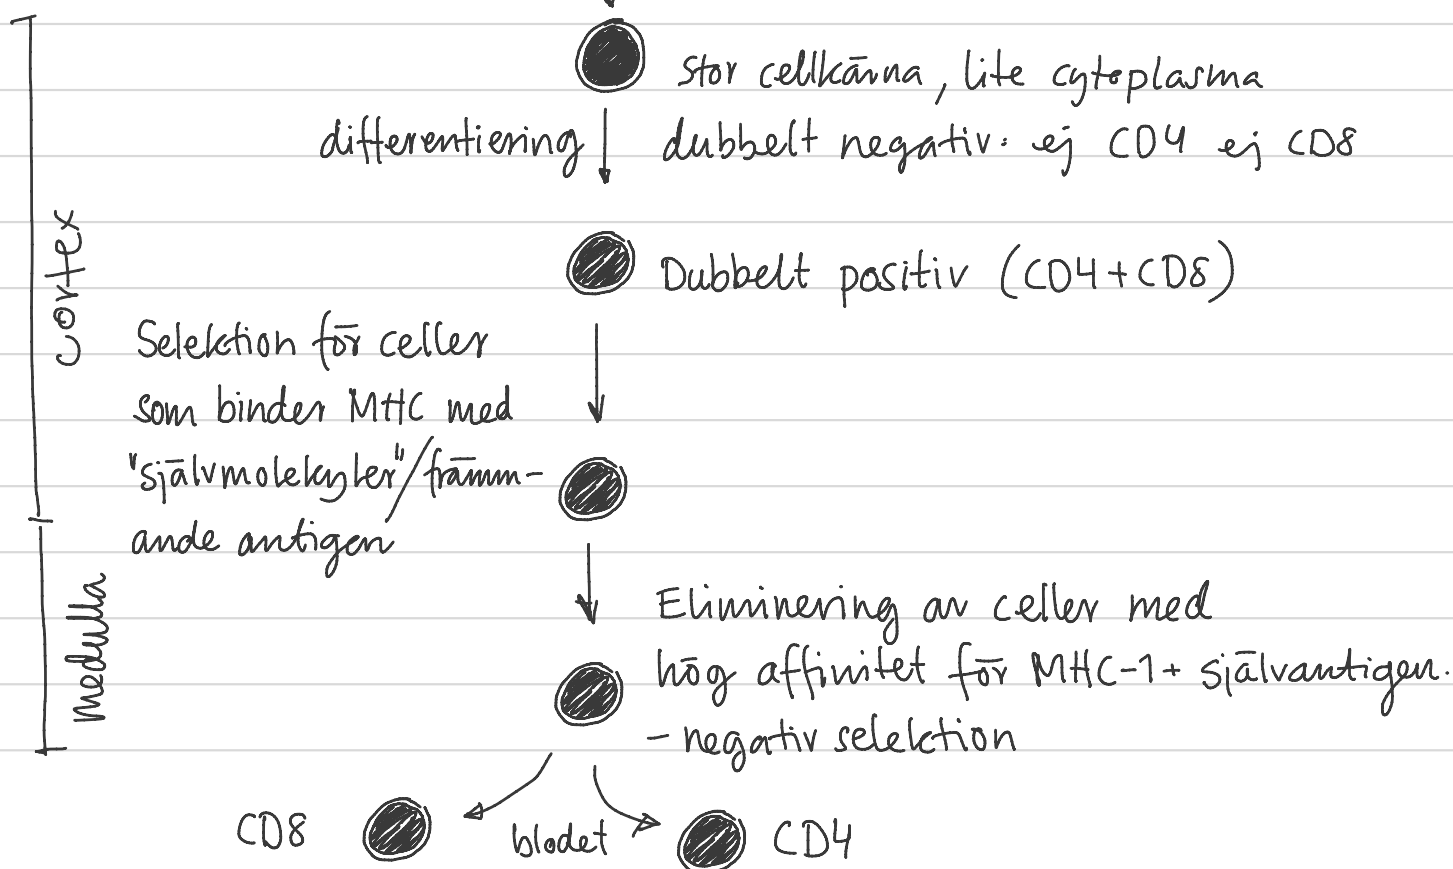 stor cellkärna, lite cytoplasma
differentiering
dubbelt negativ: ej CD4 ej CD8
cortex
Dubbelt positiv (CD4+CD8)
Selektion för celler
som binder MHC med
"självmolekyler"/främm-
ande antigen
medulla
Eliminering av celler med
hög affinitet för MHC-1+ självantigen.
- negativ selektion
CD8
blodet
CD4